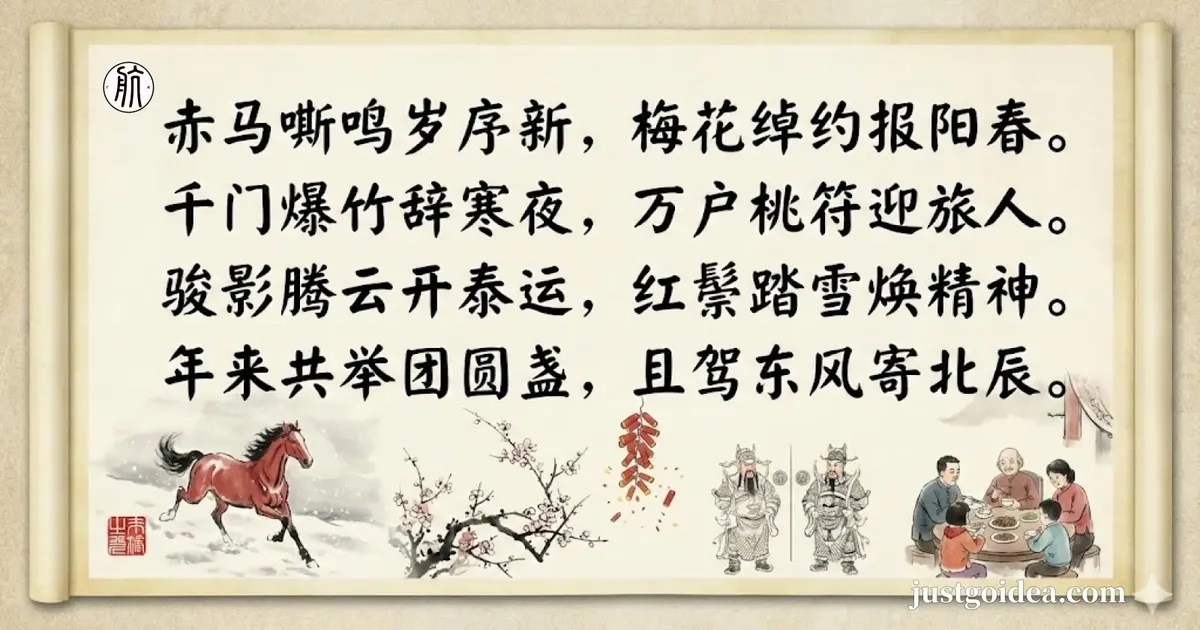 航
赤马嘶鸣岁序新，梅花绰约报阳春。
千门爆竹辞寒夜，万户桃符迎旅人。
骏影腾云开泰运，红鬃踏雪焕精神。
年来共举团圆盏，且驾东风寄北辰。
justgoidea.com